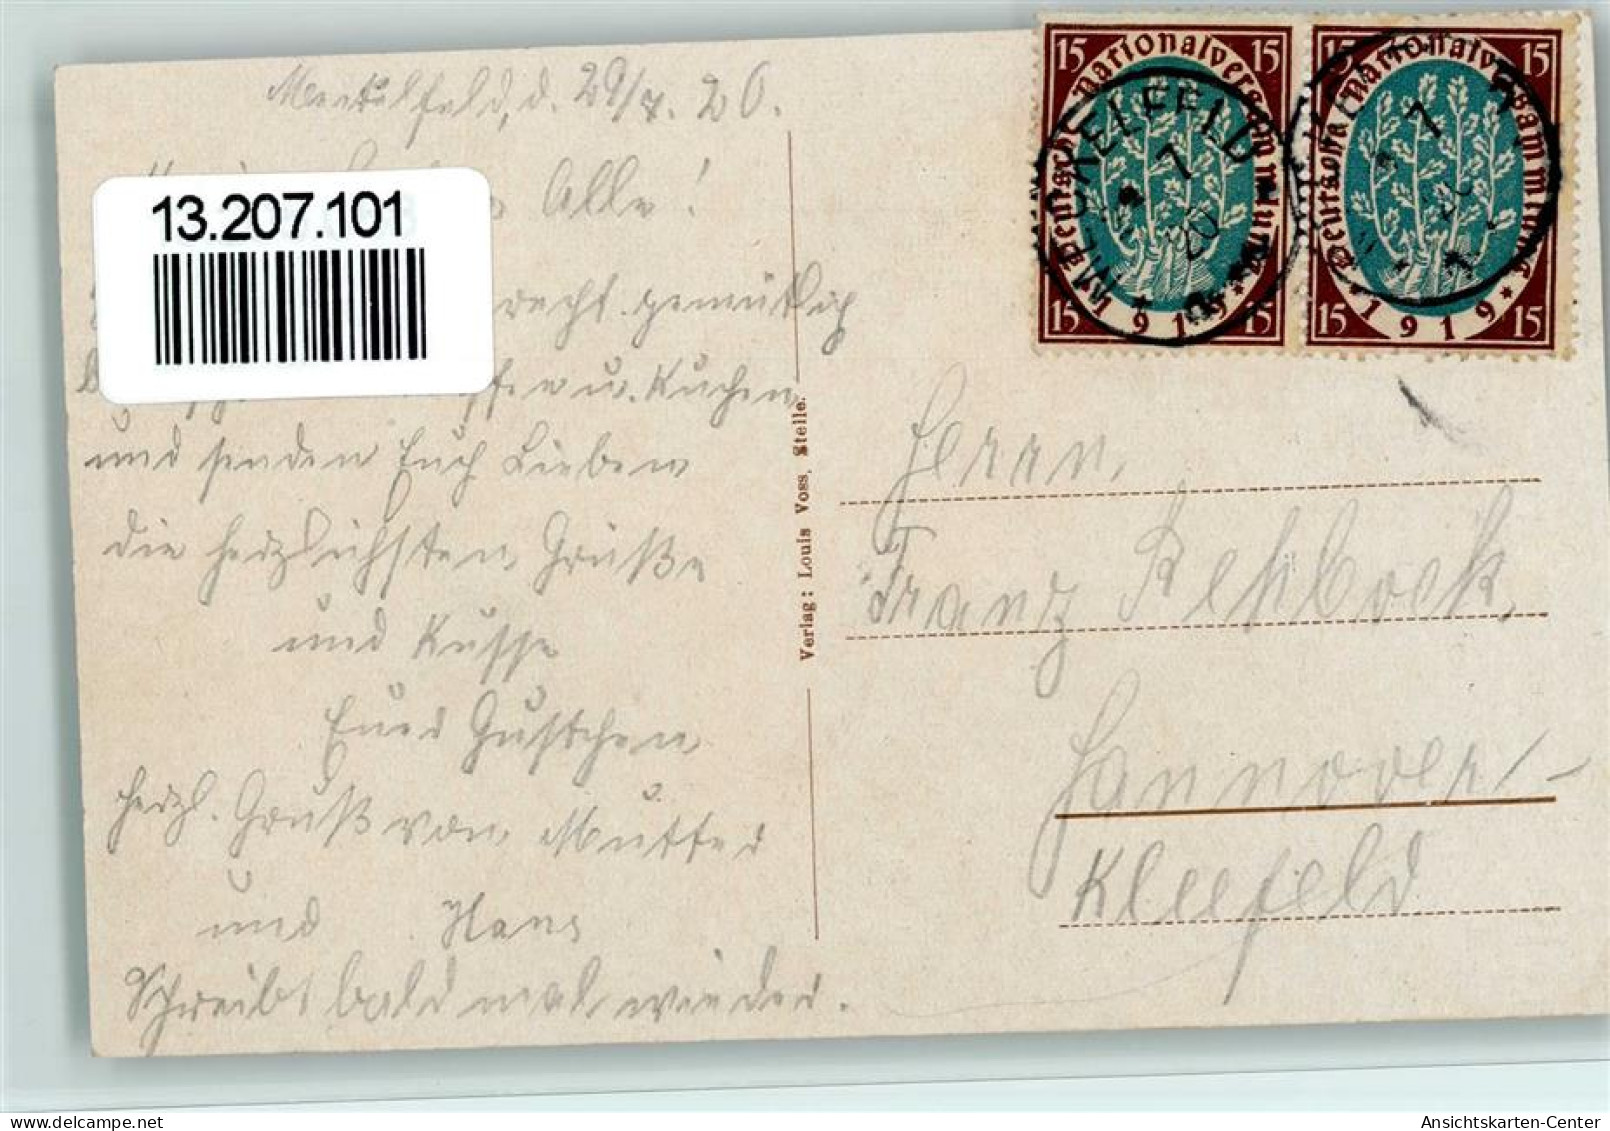 Meckelfeld, d. 29/7. 20.
Alle!
13.207.101
recht gemütlich
u. Kuchen
und senden Euch Lieben
die herzlichsten Grüße
und Küsse
Euer Gustchen
herzl. Gruß von Mutter
und Hans
Schreibt bald mal wieder.
Verlag: Louis Voss, Stelle.
15 15
Deutsche Nationalversammlung
15 1919 15
MECKELFELD
7
20
15 15
Deutsche Nationalversammlung
15 1919 15
7
20
Herrn
Franz Rehbock
Hannover-
Kleefeld
Ansichtskarten-Center